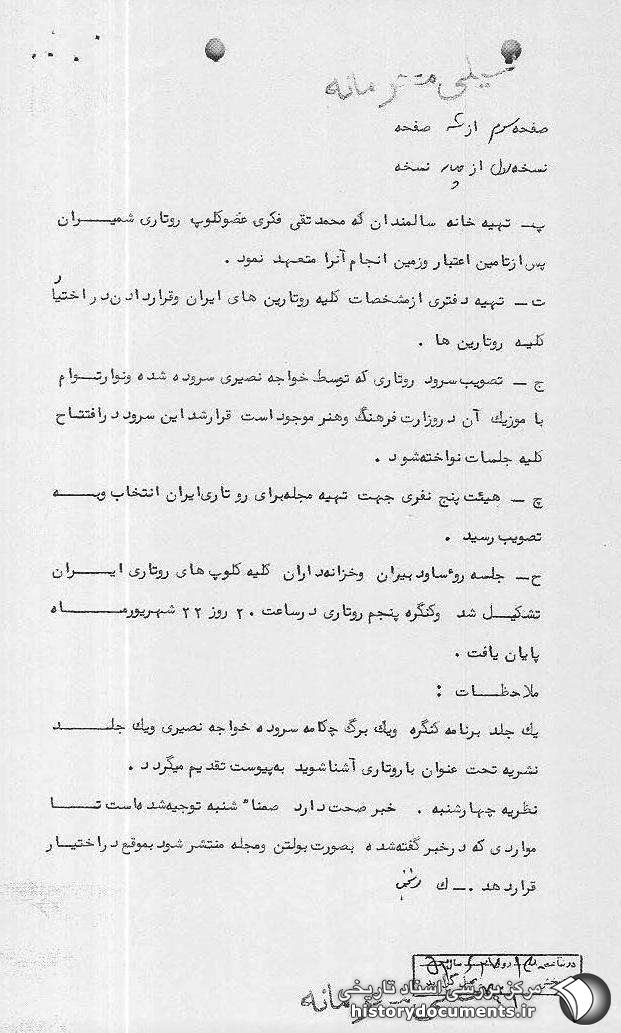 خیلی محرمانه
صفحه سوم از سه صفحه
نسخه اول از چهار نسخه
پ‍ـ تهیه خانه سالمندان که محمد تقی فکری عضو کلوپ روتاری شمیران
پس از تامین اعتبار وزمین انجام آنرا متعهد نمود .
ت ـ تهیه دفتری از مشخصات کلیه روتارین های ایران وقرار دادن در اختیار
کلیه روتارین ها .
ج ـ تصویب سرود روتاری که توسط خواجه نصیری سروده شده ونوار توام
با موزیک آن در وزارت فرهنگ وهنر موجود است قرار شد این سرود در افتتاح
کلیه جلسات نواخته شود .
چ ـ هیئت پنج نفری جهت تهیه مجله برای روتاری ایران انتخاب وبه
تصویب رسید .
ح ـ جلسه روءسا ودبیران وخزانه داران کلیه کلوپ های روتاری ایران
تشکیل شد وکنگره پنجم روتاری در ساعت ۲۰ روز ۲۲ شهریور ماه
پایان یافت .
ملاحظات :
یک جلد برنامه کنگره ویک برگ چکامه سروده خواجه نصیری ویک جلد
نشریه تحت عنوان با روتاری آشنا شوید به پیوست تقدیم میگردد .
نظریه چهارشنبه . خبر صحت دارد ضمناً شنبه توجیه شده است تا
مواردی که در خبر گفته شده بصورت بولتن ومجله منتشر شود بموقع در اختیار
قرار دهد . ـ ک
مرکز بررسی اسناد تاریخی
historydocuments.ir
محرمانه